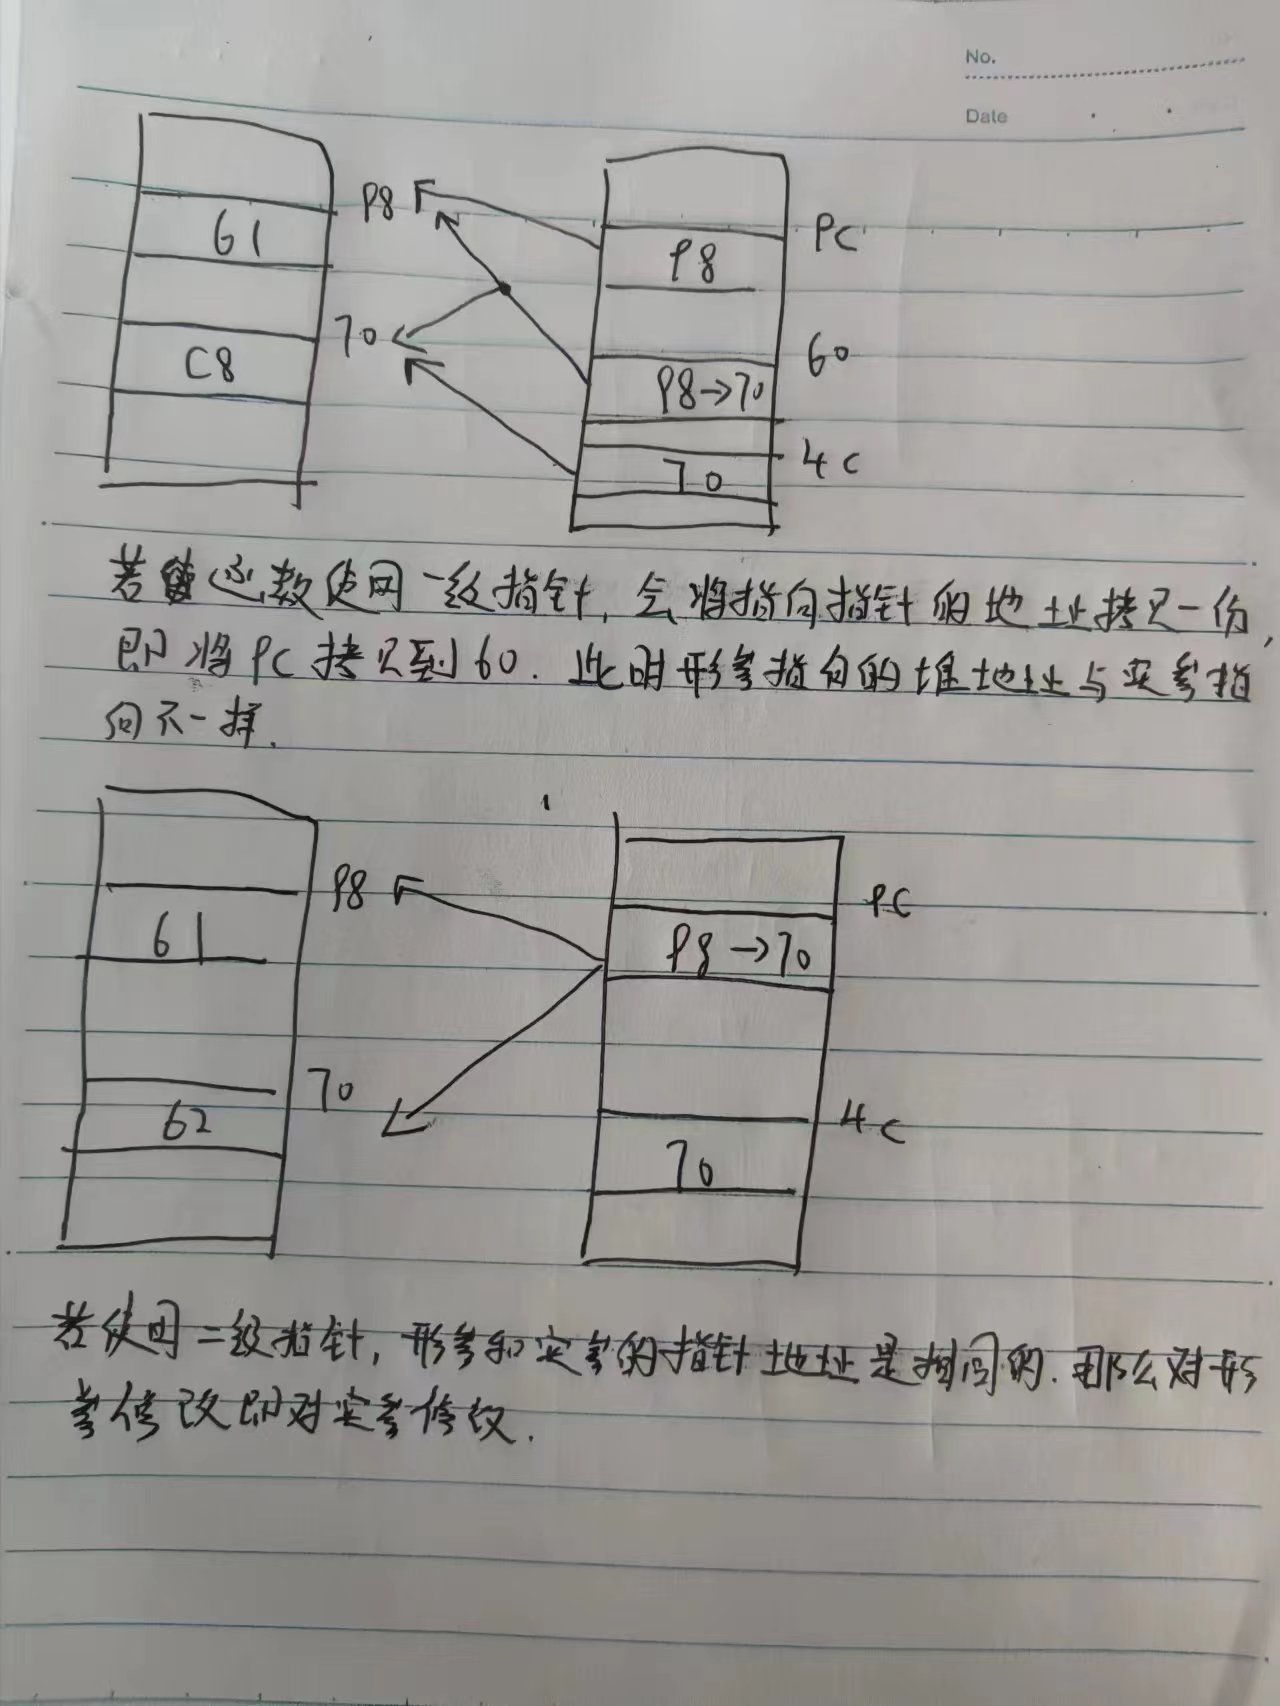 No.
Date
P8
61
PC
P8
70
60
C8
P8→70
4C
70
若 函数使用一级指针，会将指向指针的地址拷贝一份，
即将PC拷贝到60．此时形参指向的堆地址与实参指
向不一样．
P8
PC
61
P8→70
70
62
4C
70
若使用二级指针，形参和实参的指针地址是相同的．那么对形
参修改即对实参修改．